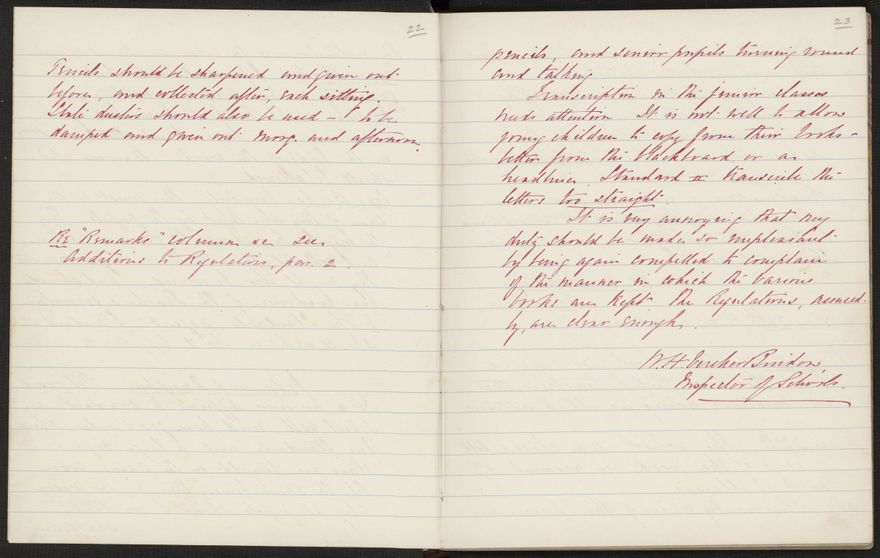 22
Pencils should be sharpened and given out
before, and collected after, each sitting.
Slate dusters should also be used — to be
damped and given out morg. and afternoon.
Re "Remarks" column see
Additions to Regulations, par. 2.
23
pencils, and senior pupils turning round
and talking
Transcription in the junior classes
needs attention It is not well to allow
young children to copy from their books –
better from the blackboard or as
headlines. Standard II transcribe the
letters too straight.
It is very annoying that my
duty should be made so unpleasant
by being again compelled to complain
of the manner in which the various
books are kept The Regulations, assured-
ly, are clear enough.
W. H.
Inspector of Schools.